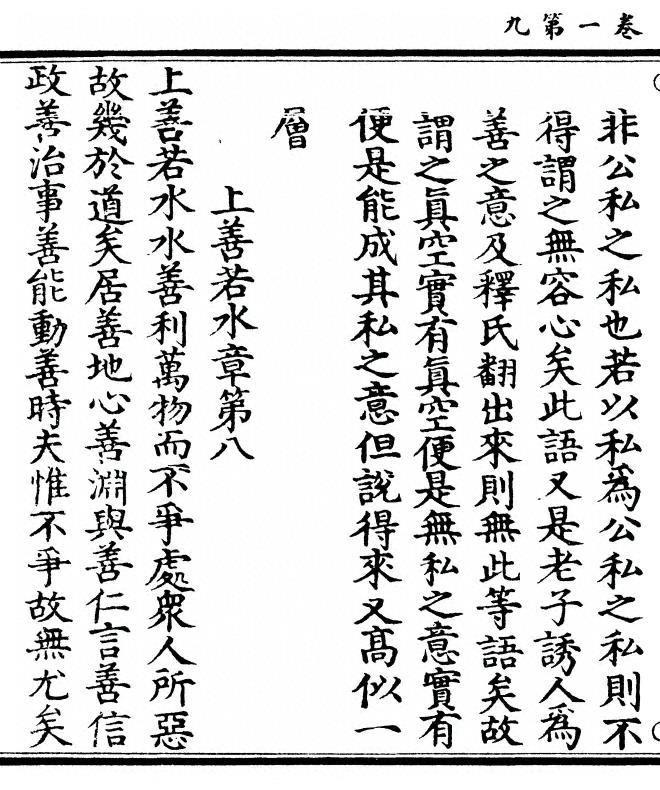 卷一第九
非公私之私也若以私爲公私之私則不
得謂之無容心矣此語又是老子誘人爲
善之意及釋氏翻出來則無此等語矣故
謂之眞空實有眞空便是無私之意實有
便是能成其私之意但說得來又髙似一
層
上善若水章第八
上善若水水善利萬物而不爭處衆人所惡
故幾於道矣居善地心善淵與善仁言善信
政善治事善能動善時夫惟不爭故無尤矣